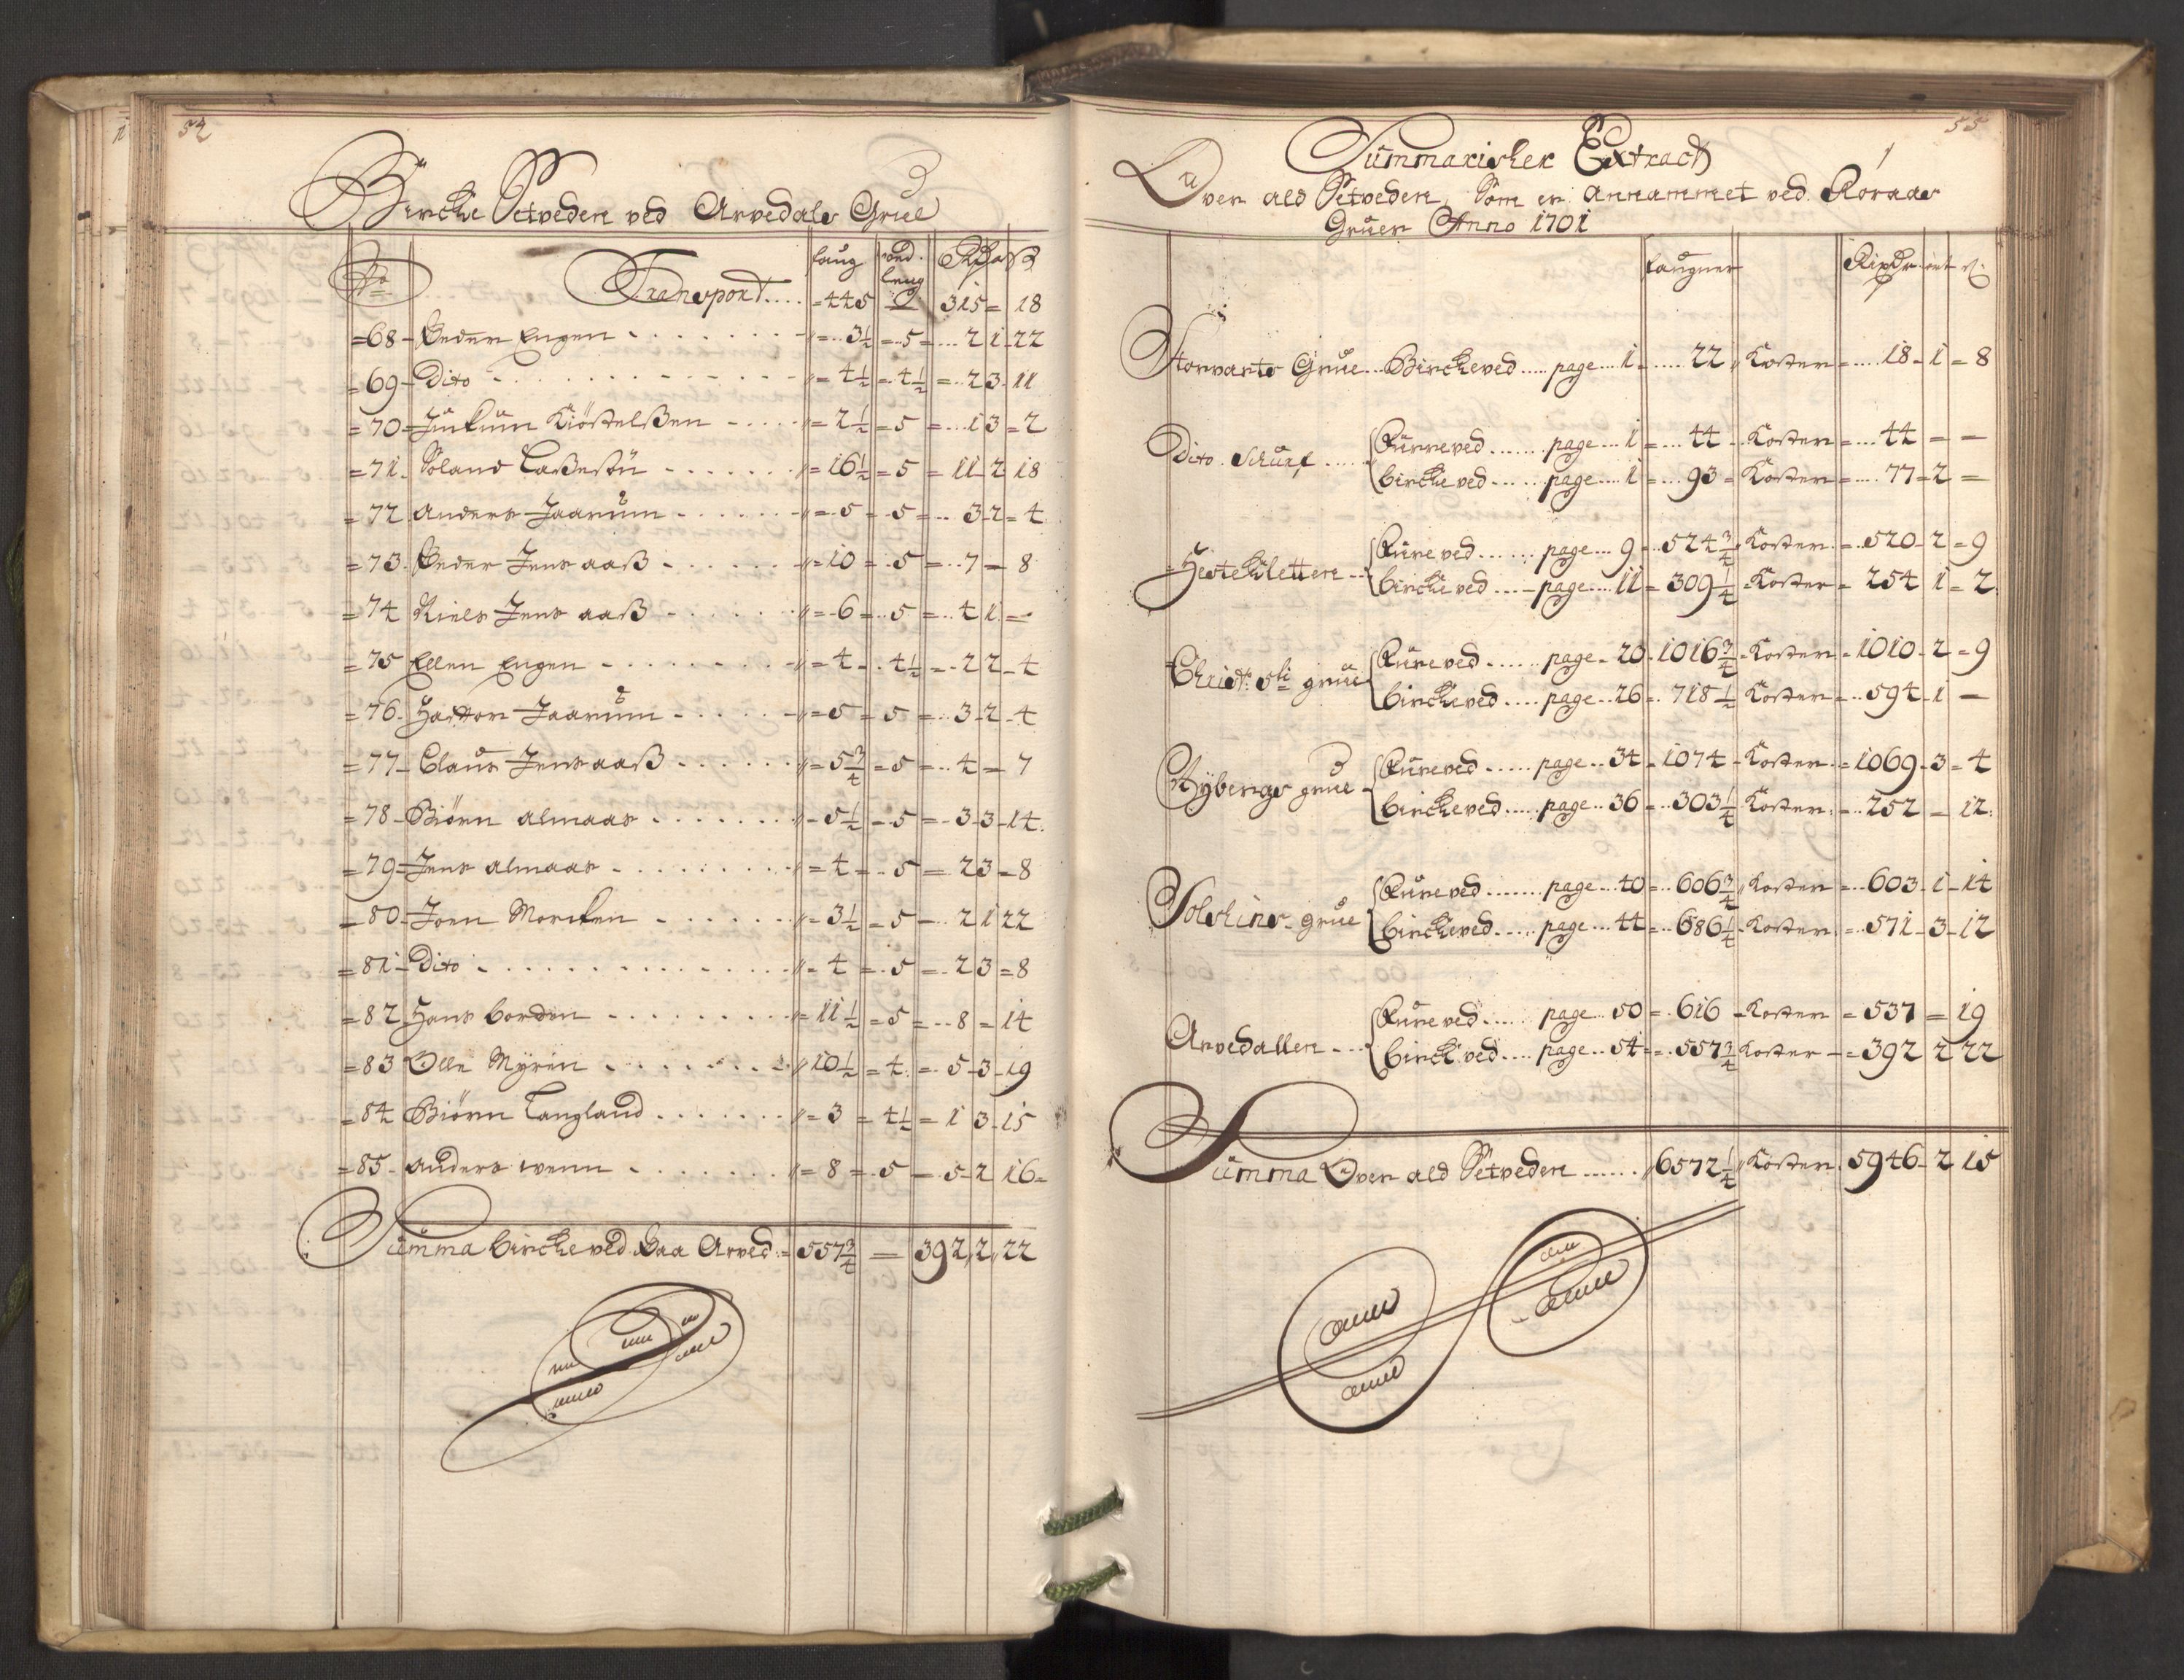 54
Bircke Setveden ved Arvedals Grue
No
faug
ved leng
Rdr
Transport .... 445 — 315 = 18
68 Peder Engen 3½ 5 2 1 22
69 Dito 4½ 4½ 2 3 11
70 Kiöstelßen 2½ 5 1 3 2
71 16½ 5 11 2 18
72 Anders Jaarum 5 5 3 2 4
73 Peder Jens aaß 10 5 7 — 8
74 Niels Jens aaß 6 5 4 1 —
75 Ellen Engen 4 4½ 2 2 4
76 Jaarum 5 5 3 2 4
77 Claus Jens aaß 5¾ 5 4 — 7
78 Biörn Almaas 5½ 5 3 3 14
79 Jens Almaas 4 5 2 3 8
80 Joen Morcken 3½ 5 2 1 22
81 Dito 4 5 2 3 8
82 Hans borden 11½ 5 8 — 14
83 Olle Myren 10½ 4 5 3 19
84 Biörn Langland 3 4½ 1 3 15
85 Anders wenn 8 5 5 2 16
Summa bircke ved Paa Arved: 557¾ — 392 2 22
55
Summarisker Extract
Over ald Setveden, Som er Annammet ved Röraas
Gruer Anno 1701
faugner
Rixdr ort s:
Storvarts Grue Bircke ved page 1 22 Koster 18 1 8
Dito Schurf Furreved page 1 44 Koster 44 — —
bircke ved page 1 93 Koster 77 2 —
Hestekletten Fureved page 9 524¾ Koster 520 2 9
bircke ved page 11 309¼ Koster 254 1 2
Christ: 5ti grue Fureved page 20 1016¾ Koster 1010 2 9
birckeved page 26 718½ Koster 594 1 —
Rybergs grue Fureved page 34 1074 Koster 1069 3 4
birckeved page 36 303¼ Koster 252 — 12
Solskins grue Fureved page 40 606¾ Koster 603 1 14
birckeved page 44 686¼ Koster 571 3 12
Arvedallen Fureved page 50 616 Koster 537 — 19
birck ved page 54 557¾ Koster 392 2 22
Summa Over ald Setveden 6572¼ Koster 5946 2 15